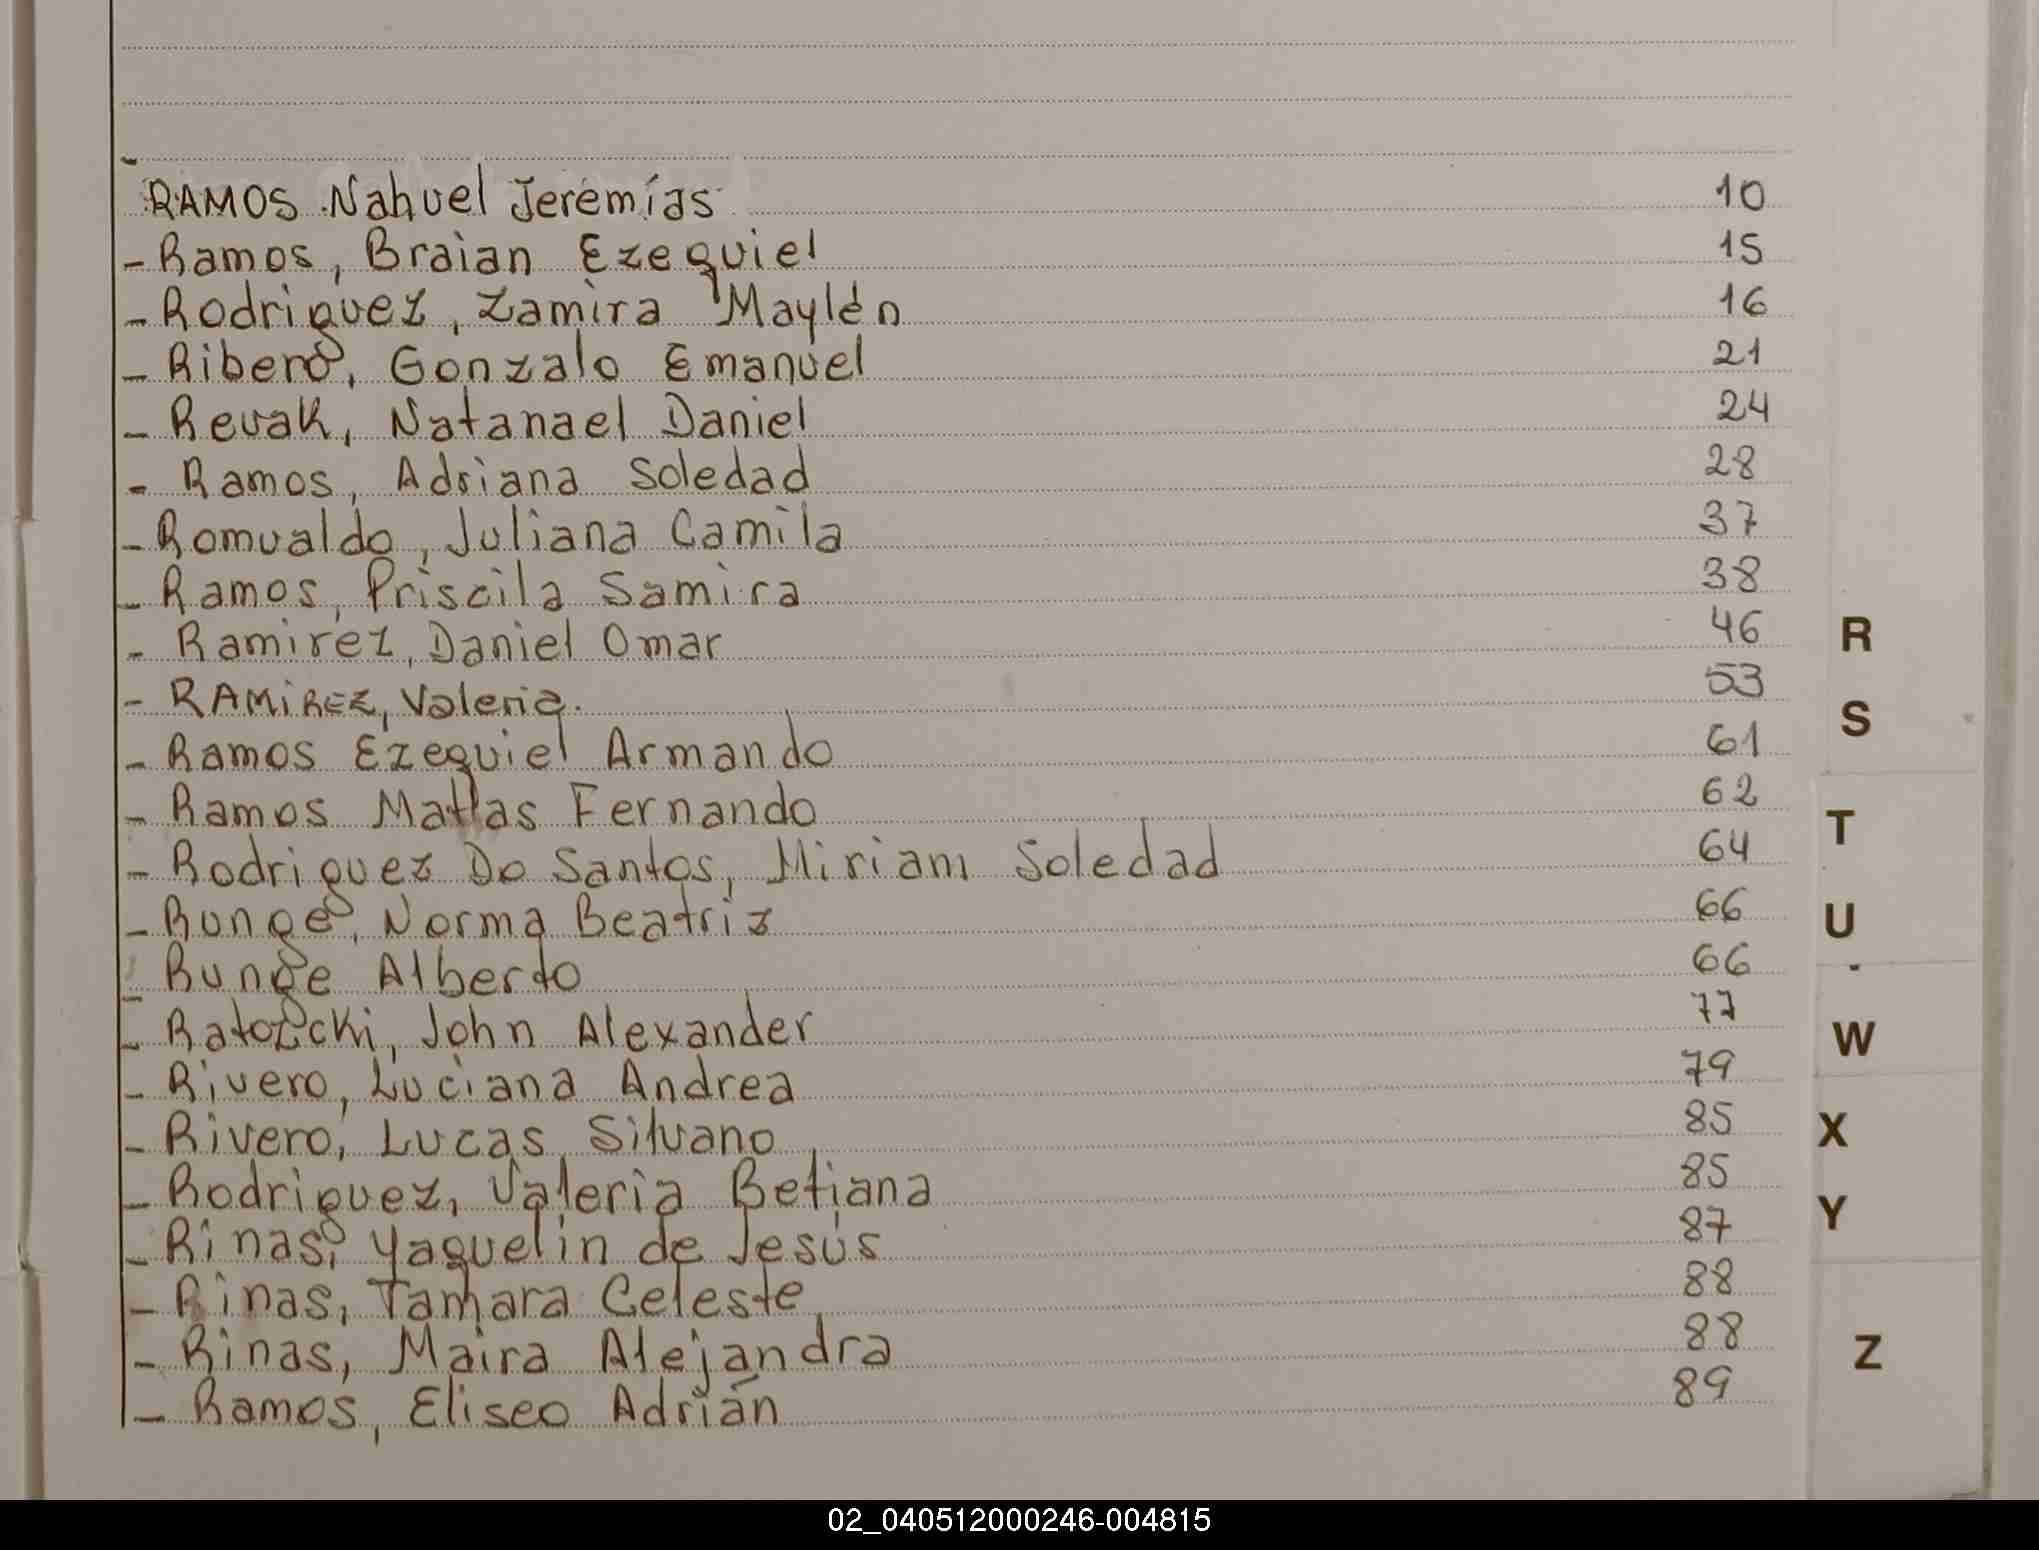 RAMOS Nahuel Jeremías 10
- Ramos, Braian Ezequiel 15
- Rodriguez, Zamira Maylén 16
- Ribero, Gonzalo Emanuel 21
- Revak, Natanael Daniel 24
- Ramos, Adriana Soledad 28
- Romualdo, Juliana Camila 37
- Ramos, Priscila Samira 38
- Ramirez, Daniel Omar 46
- RAMIREZ, Valeria. 53
- Ramos Ezequiel Armando 61
- Ramos Matías Fernando 62
- Rodriguez Do Santos, Miriam Soledad 64
- Runge, Norma Beatriz 66
- Runge Alberto 66
- Ratozcki, John Alexander 77
- Rivero, Luciana Andrea 79
- Rivero, Lucas Silvano 85
- Rodriguez, Valeria Betiana 85
- Rinas, Yaquelin de Jesús 87
- Rinas, Tamara Celeste 88
- Rinas, Maira Alejandra 88
- Ramos, Eliseo Adrián 89
R
S
T
U
W
X
Y
Z
02_040512000246-004815